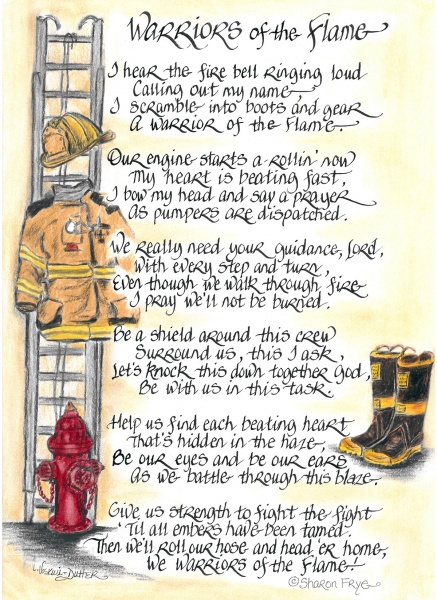 Warriors of the Flame
I hear the fire bell ringing loud
Calling out my name
I scramble into boots and gear
A warrior of the flame.
Our engine starts a rollin' now
My heart is beating fast,
I bow my head and say a prayer
As pumpers are dispatched.
We really need your guidance, Lord,
With every step and turn,
Even though we walk through fire
I pray we'll not be burned.
Be a shield around this crew
Surround us, this I ask,
Let's knock this down together God,
Be with us in this task.
Help us find each beating heart
That's hidden in the haze,
Be our eyes and be our ears
As we battle through this blaze.
Give us strength to fight the fight
'Til all embers have been tamed.
Then we'll roll our hose and head 'er home,
We Warriors of the Flame!
©Sharon Frye